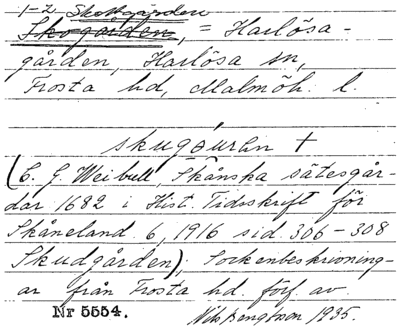 1-2 Skottgården
Skogården, = Harlösa-
gården, Harlösa sn,
Frosta hd, Malmöh. l.
skugóurhn +
(C. G. Weibull, Skånska sätesgår-
dar 1682 i Hist. Tidsskrift för
Skåneland 6, 1916 sid. 306-308
Skudgården); Sockenbeskrivning-
ar från Frosta hd. förf. av
Nr 5554. Nils Bengtsson 1935.